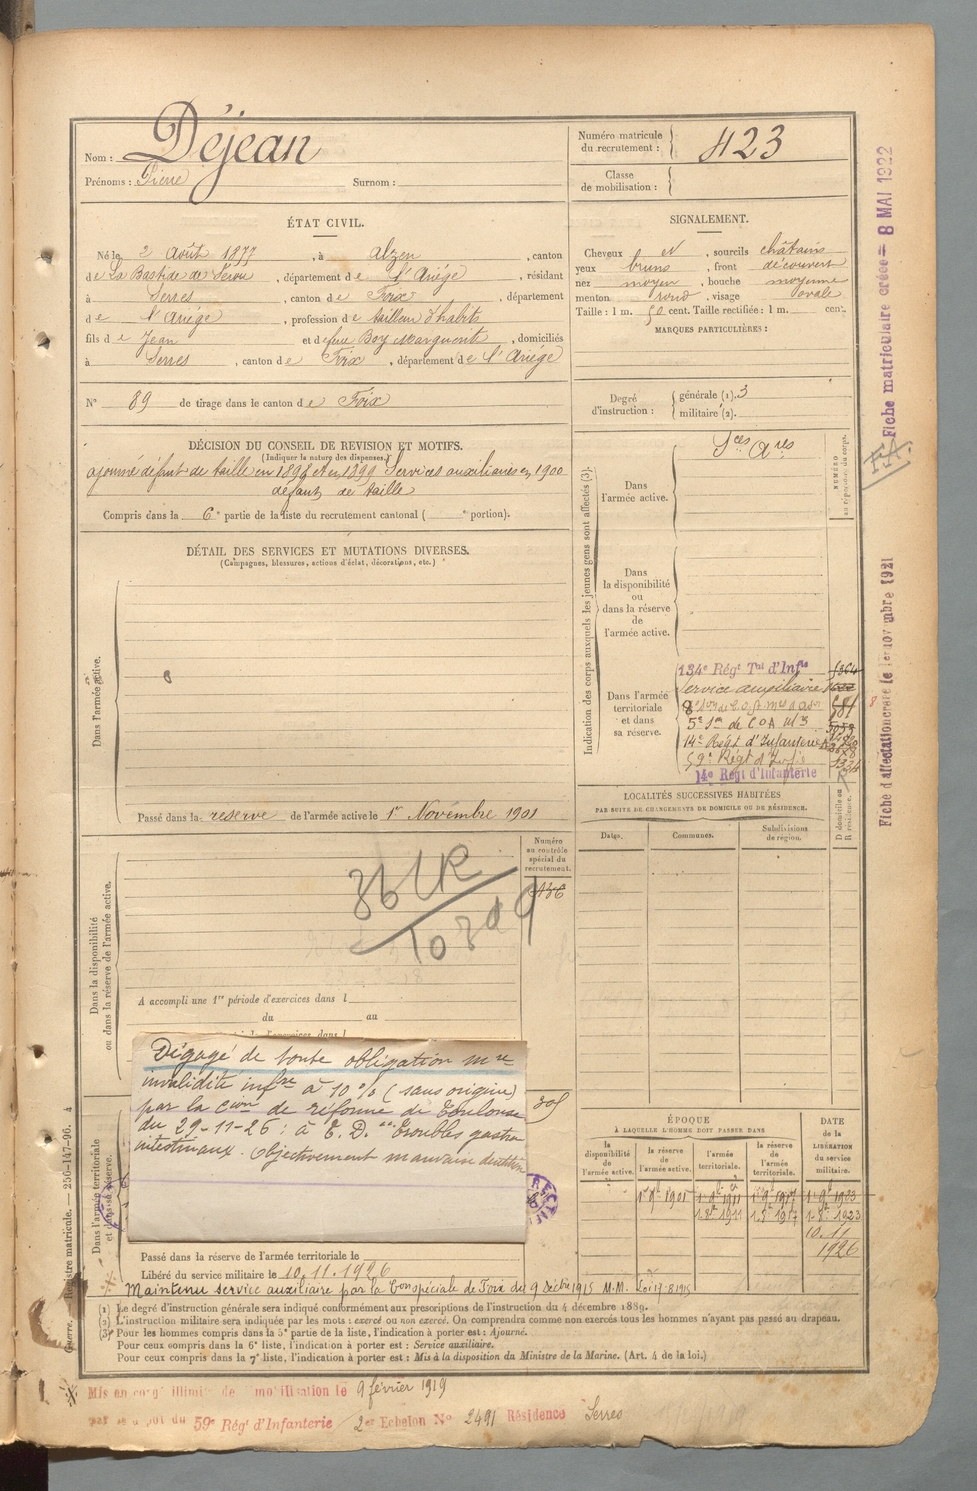 Nom : Déjean
Prénoms : Pierre Surnom :
Numéro matricule du recrutement : 423
Classe de mobilisation :
ÉTAT CIVIL.
Né le 2 Août 1877, à Alzen, canton
de La Bastide de Sérou, département de l'Ariège, résidant
à Serres, canton de Foix, département
de l'Ariège, profession de tailleur d'habits
fils de Jean et de feue Boy Marguerite, domiciliés
à Serres, canton de Foix, département de l'Ariège
N° 89 de tirage dans le canton de Foix
SIGNALEMENT.
Cheveux N, sourcils châtains
yeux bruns, front découvert
nez moyen, bouche moyenne
menton rond, visage ovale
Taille : 1 m. 50 cent. Taille rectifiée : 1 m. cent.
MARQUES PARTICULIÈRES :
Degré d'instruction : générale (1). 3
militaire (2).
DÉCISION DU CONSEIL DE REVISION ET MOTIFS.
(Indiquer la nature des dispenses.)
ajourné défaut de taille en 1898 et en 1899 Services auxiliaires en 1900
défaut de taille
Compris dans la 6e partie de la liste du recrutement cantonal ( e portion).
DÉTAIL DES SERVICES ET MUTATIONS DIVERSES.
(Campagnes, blessures, actions d'éclat, décorations, etc.)
Dans l'armée active.
Passé dans la reserve de l'armée active le 1er Novembre 1901
Indication des corps auxquels les jeunes gens sont affectés (3).
NUMÉRO au répertoire du corps.
Sces Ares
Dans l'armée active.
Dans la disponibilité ou dans la réserve de l'armée active.
Dans l'armée territoriale et dans sa réserve.
134e Régt Tal d'Infie
Service auxiliaire
5e Son de COA
14e Régt d'Infanterie
59e Régt d'Infie
14e Régt d'Infanterie
LOCALITÉS SUCCESSIVES HABITÉES
PAR SUITE DE CHANGEMENTS DE DOMICILE OU DE RÉSIDENCE.
Dates. Communes. Subdivisions de région. D domicile ou R résidence.
Dans la disponibilité ou dans la réserve de l'armée active.
Numéro au contrôle spécial du recrutement.
A accompli une 1re période d'exercices dans l
du au
Dégagé de toute obligation mre
invalidité infre à 10 % (sans origine)
par la Cion de réforme de Toulouse
du 29-11-26 : à E. D. "Troubles gastro
intestinaux. Objectivement mauvaise dentition
Dans l'armée territoriale et dans sa réserve.
Passé dans la réserve de l'armée territoriale le
Libéré du service militaire le 10.11.1926
Maintenu service auxiliaire par la Con spéciale de Foix du 9 décbre 1915 M.M. Loi 17-8-1915
ÉPOQUE
À LAQUELLE L'HOMME DOIT PASSER DANS
la disponibilité de l'armée active.
la réserve de l'armée active.
l'armée territoriale.
la réserve de l'armée territoriale.
DATE de la LIBÉRATION du service militaire.
10.11
1926
(1) Le degré d'instruction générale sera indiqué conformément aux prescriptions de l'instruction du 4 décembre 1889.
(2) L'instruction militaire sera indiquée par les mots : exercé ou non exercé. On comprendra comme non exercés tous les hommes n'ayant pas passé au drapeau.
(3) Pour les hommes compris dans la 5e partie de la liste, l'indication à porter est : Ajourné.
Pour ceux compris dans la 6e liste, l'indication à porter est : Service auxiliaire.
Pour ceux compris dans la 7e liste, l'indication à porter est : Mis à la disposition du Ministre de la Marine. (Art. 4 de la loi.)
Mis en congé illimité de démobilisation le 9 février 1919
par le dépôt du 59e Régt d'Infanterie 2er Echelon N° 2491 Résidence Serres
Fiche matriculaire créée = 8 MAI 1922
F.A.
Fiche d'affectation créée le 1er novembre 1921
Guerre. Registre matricule. — 250-147-96. 4